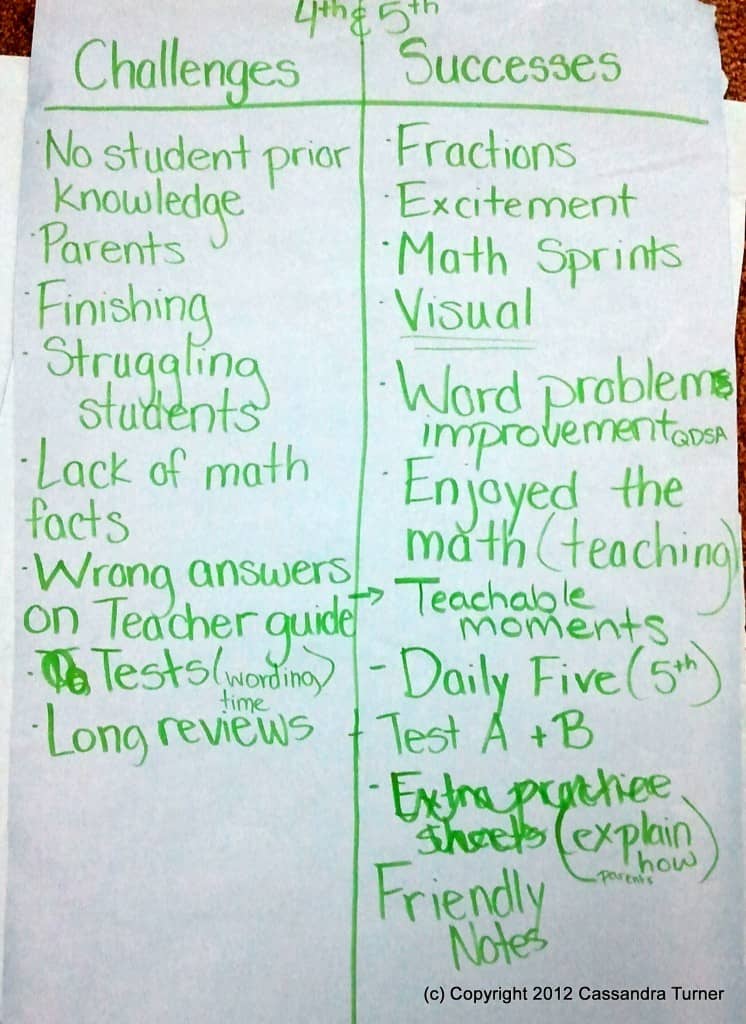 4th & 5th
Challenges
· No student prior
knowledge
· Parents
· Finishing
· Struggling
students
· Lack of math
facts
· Wrong answers
on Teacher guide →
· Tests (wording)
time
· Long reviews
Successes
· Fractions
· Excitement
· Math Sprints
· Visual
· Word problems
improvement QDSA
· Enjoyed the
math (teaching)
Teachable
moments
- Daily Five (5th)
Test A + B
- Extra practice
sheets (explain
how
parents)
Friendly
Notes
(c) Copyright 2012 Cassandra Turner